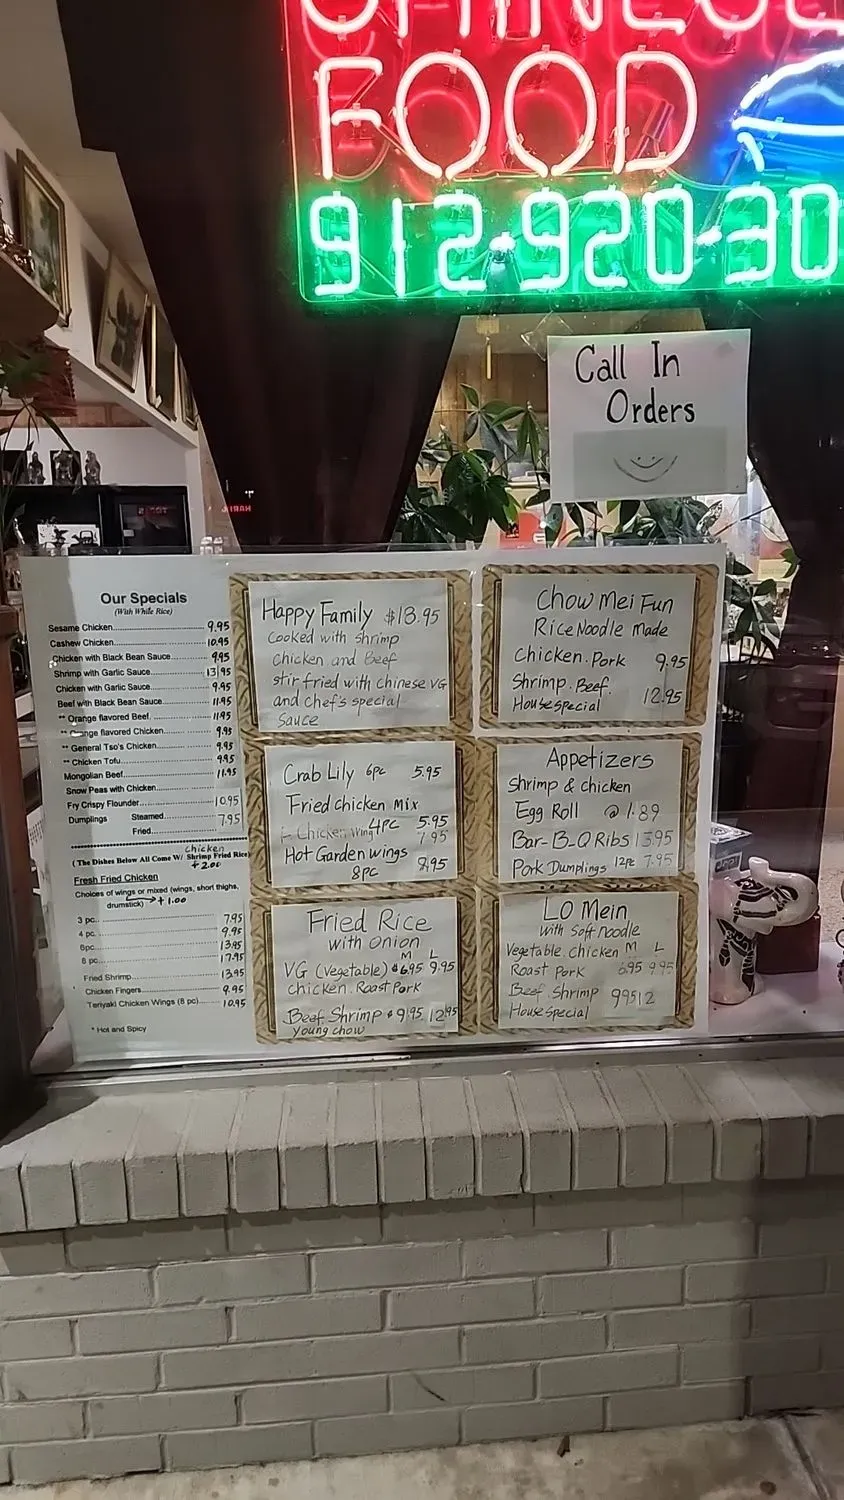 CHINESE
FOOD
912-920-30
Call In
Orders
Our Specials
(With White Rice)
Sesame Chicken 9.95
Cashew Chicken 10.95
Chicken with Black Bean Sauce 9.95
Shrimp with Garlic Sauce 13.95
Chicken with Garlic Sauce 9.95
Beef with Black Bean Sauce 11.95
** Orange flavored Beef 11.95
** Orange flavored Chicken 9.95
** General Tso's Chicken 9.95
** Chicken Tofu 9.95
Mongolian Beef 11.95
Snow Peas with Chicken
Fry Crispy Flounder 10.95
Dumplings Steamed 7.95
Fried
chicken
(The Dishes Below All Come W/ Shrimp Fried Rice)
+2.00
Fresh Fried Chicken
Choices of wings or mixed (wings, short thighs,
drumstick) +1.00
3 pc 7.95
4 pc 9.95
6pc 13.95
8 pc 17.95
Fried Shrimp 13.95
Chicken Fingers 9.95
Teriyaki Chicken Wings (8 pc) 10.95
* Hot and Spicy
Happy Family $13.95
Cooked with shrimp
chicken and Beef
stir fried with Chinese VG
and chef's special
Sauce
Chow Mei Fun
Rice Noodle Made
Chicken. Pork 9.95
Shrimp. Beef.
House special 12.95
Crab Lily 6pc 5.95
Fried chicken Mix
4pc 5.95
Chicken Wing 7.95
Hot Garden wings
8pc 9.95
Appetizers
Shrimp & chicken
Egg Roll @ 1.89
Bar-B-Q Ribs 13.95
Pork Dumplings 12pc 7.95
Fried Rice
with onion
M L
VG (Vegetable) $6.95 9.95
chicken. Roast Pork
Beef Shrimp $9.95 12.95
young chow
LO Mein
with Soft noodle
Vegetable. chicken M L
Roast Pork 6.95 9.95
Beef. Shrimp 9.95 12
House special